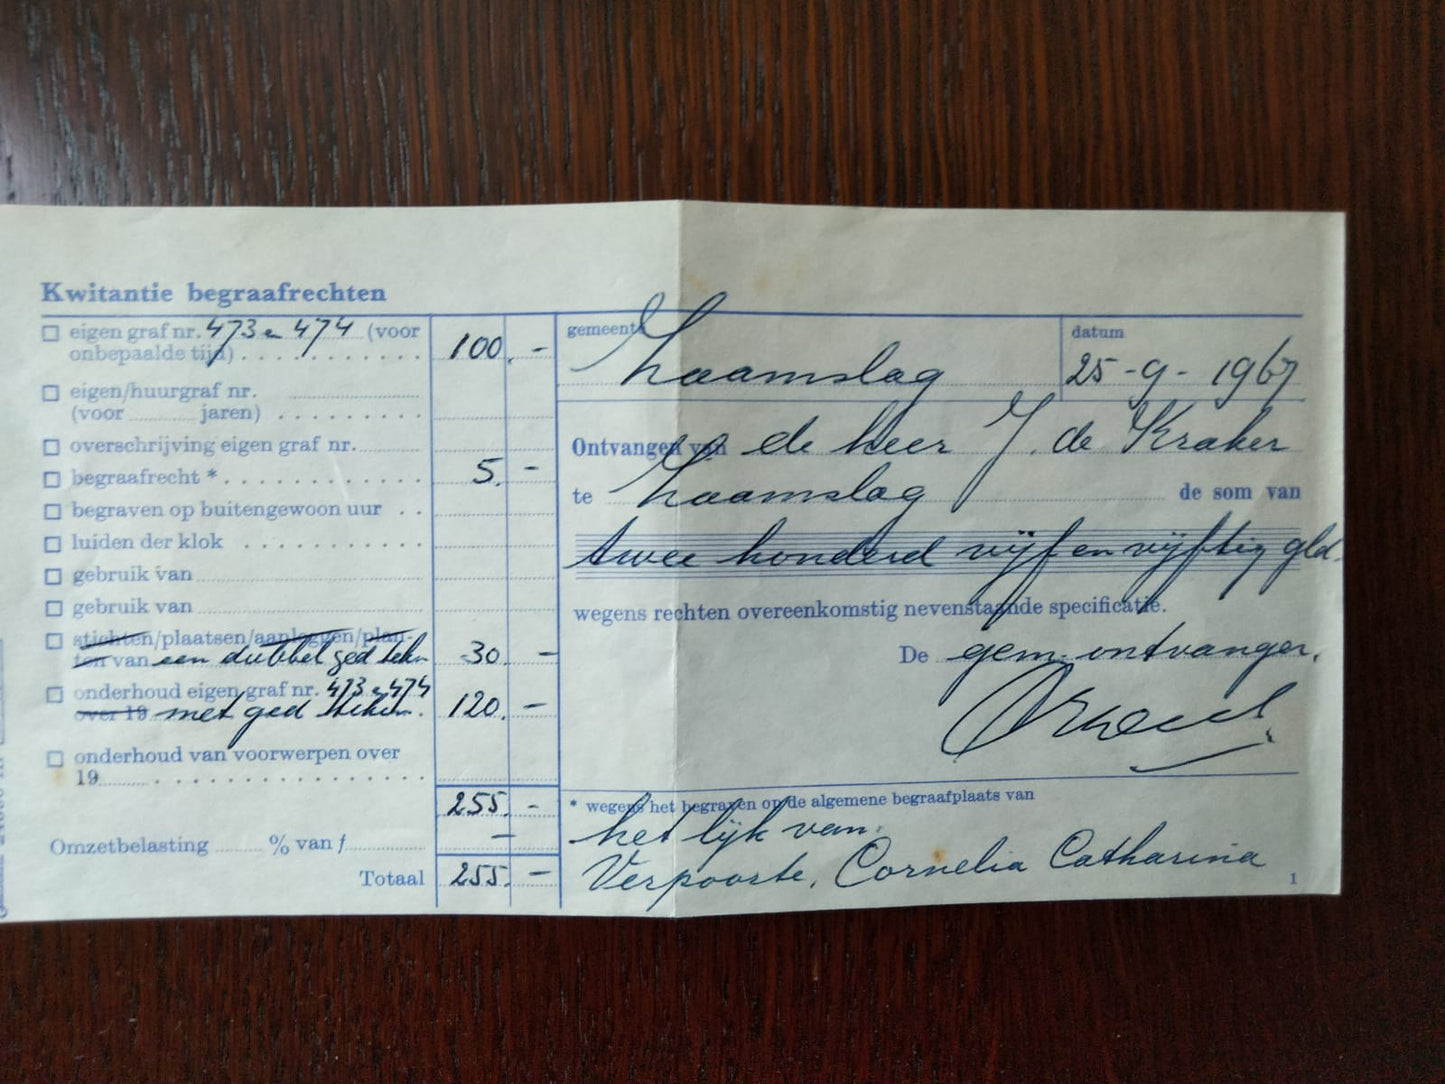 Kwitantie begraafrechten
eigen graf nr. 473 en 474 (voor
onbepaalde tijd) 100.-
eigen/huurgraf nr.
(voor jaren)
overschrijving eigen graf nr.
begraafrecht * 5.-
begraven op buitengewoon uur
luiden der klok
gebruik van
gebruik van
stichten/plaatsen/aanleggen/plan-
ten van een dubbel ged teken 30 -
onderhoud eigen graf nr. 473 en 474
over 19 met ged teken. 120.-
onderhoud van voorwerpen over
19
255.-
Omzetbelasting % van f -
Totaal 255.-
gemeente Zaamslag
datum
25-9-1967
Ontvangen van de heer J. de Kraker
te Zaamslag de som van
twee honderd vijf en vijftig gld.
wegens rechten overeenkomstig nevenstaande specificatie.
De gem. ontvanger.
* wegens het begraven op de algemene begraafplaats van
het lijk van
Verpoorte, Cornelia Catharina
1